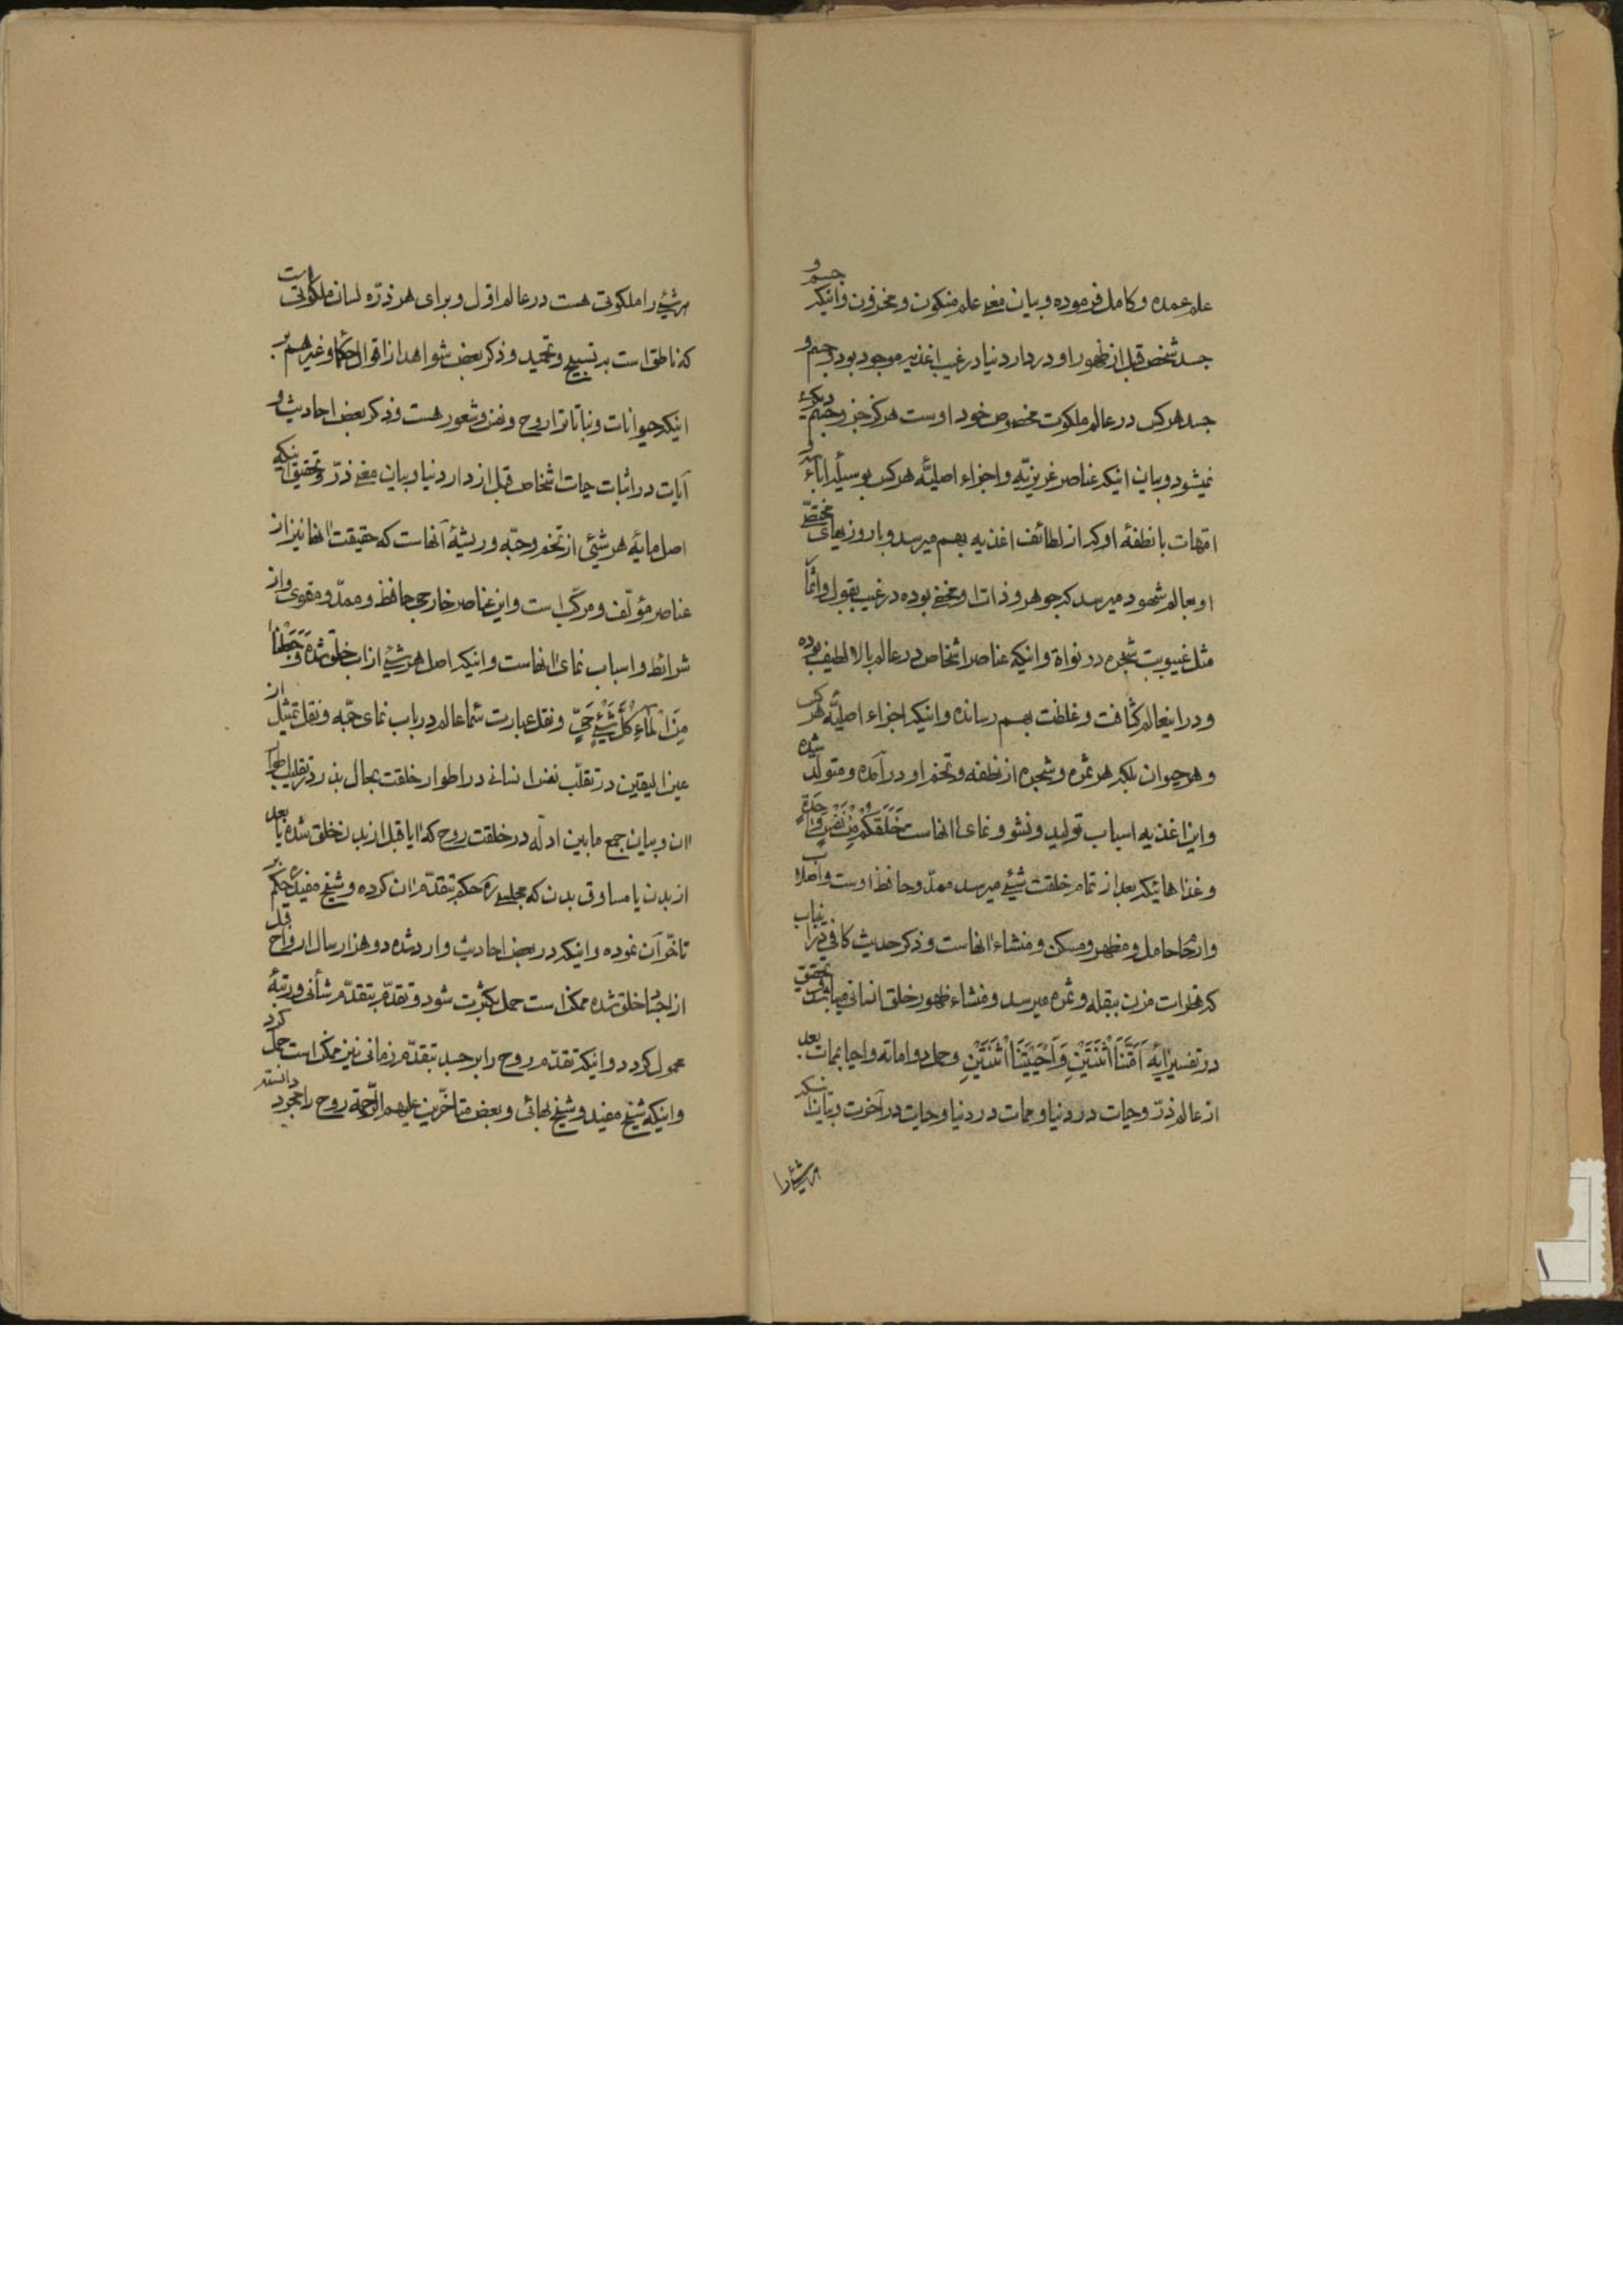 علم عمده و کامل فرموده و بیان معنی علم مکنون و مخزون و اینکه جسم و
جسد شخص قبل از ظهور او در دار دنیا در غیب اغذیه موجود بوده و جسم و
جسد هر کس در عالم ملکوت مخصوص خود اوست هرگز جزو جسم دیگری
نمیشود و بیان اینکه عناصر غریزیّه و اجزاء اصلیّه هر کس بوسیلهٔ اباء و
امّهات با نطفهٔ او که از لطائف اغذیه بهم میرسد و با روزیهای مختصّ
او بعالم شهود میرسد که جوهر و ذات او مخفی بوده در غیب بقول و انّما
مثل غیبوبت شجره در نواة و اینکه عناصر اشخاص در عالم بالا لطیف بوده
و در اینعالم کثافت و غلظت بهم رسانده و اینکه اجزاء اصلیّه هر کس
و هر حیوان بلکه هر ثمره و شجره از نطفه و تخم او در آمده و متولّد شده
و این اغذیه اسباب تولید و نشو و نمای انهاست خَلَقَکُمْ مِنْ نَفْسٍ وٰاحِدَةٍ
و غذاهائیکه بعد از تمام خلقت شیئی میرسد ممدّ و حافظ اوست و اصلاب
و ارحام حامل و مظهر و مسکن و منشاء انهاست و ذکر حدیث کافی در اینباب
که قطرات مزن ببقله و ثمره میرسد و منشاء ظهور خلق انسانی میباشد و تحقیق
در تفسیر ایهٔ اَمَتَّنَا اثْنَتَیْنِ وَ اَحْیَیْتَنَا اثْنَتَیْنِ و حمل دو اماته و احیا بممات بعد
از عالم ذرّ و حیات در دنیا و ممات در دنیا و حیات در آخرت و بیان اینکه
هر شیئ را
هر شیئی را ملکوتی هست در عالم اوّل و برای هر ذرّه لسان ملکوتی است
که ناطق است به تسبیح و تمجید و ذکر بعض شواهد از اقوال حکما و غیرهم بر
اینکه حیوانات و نباتات را روح و نفس و شعور هست و ذکر بعض احادیث و
آیات در اثبات حیات اشخاص قبل از دار دنیا و بیان معنی ذرّ و تحقیق اینکه
اصل مایهٔ هر شیئی از تخم و حبّه و ریشهٔ آنهاست که حقیقت انها نیز از
عناصر مؤلّف و مرکّب است و این عناصر خارجی حافظ و ممدّ و مقوی و از
شرائط و اسباب نمای انهاست و اینکه اصل هر شیئی از اب خلق شده وَ جَعَلْنٰا
مِنَ الْمٰاءِ کُلَّ شَیْئٍ حَیٍّ و نقل عبارت سما عالم در باب نمای حبّه و نقل تمثیل از
عین الیقین در تقلّب نفس انسانی در اطوار خلقت بحال بذر در تقلیب اطوار
ان و بیان جمع مابین ادلّه در خلقت روح که ایا قبل از بدن خلق شده یا بعد
از بدن یا مساوق بدن که مجلسی ره حکم بتقدّم ان کرده و شیخ مفید ره حکم بر
تاخّر آن نموده و اینکه در بعض احادیث وارد شده دو هزار سال ارواح قبل
از اجساد خلق شده ممکن است حمل بکثرت شود و تقدّم بتقدّم شأنی و رتبهٔ
محمول گردد و اینکه تقدّم روح را بر جسد بتقدّم زمانی نیز ممکن است حمل کرد
و اینکه شیخ مفید و شیخ بهائی و بعض متاخّرین علیهم الرّحمة روح را مجرد دانسته